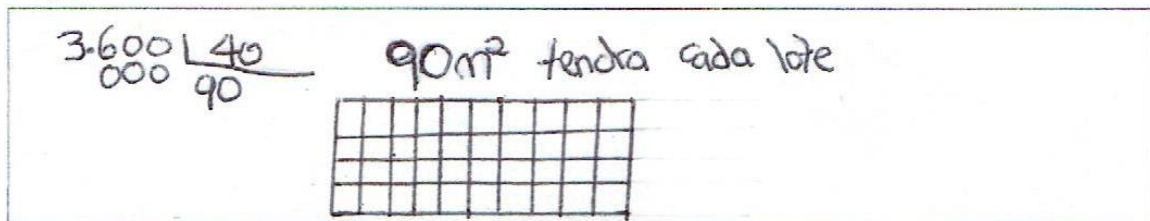 3.600 40
000 90
90m² tendra cada lote